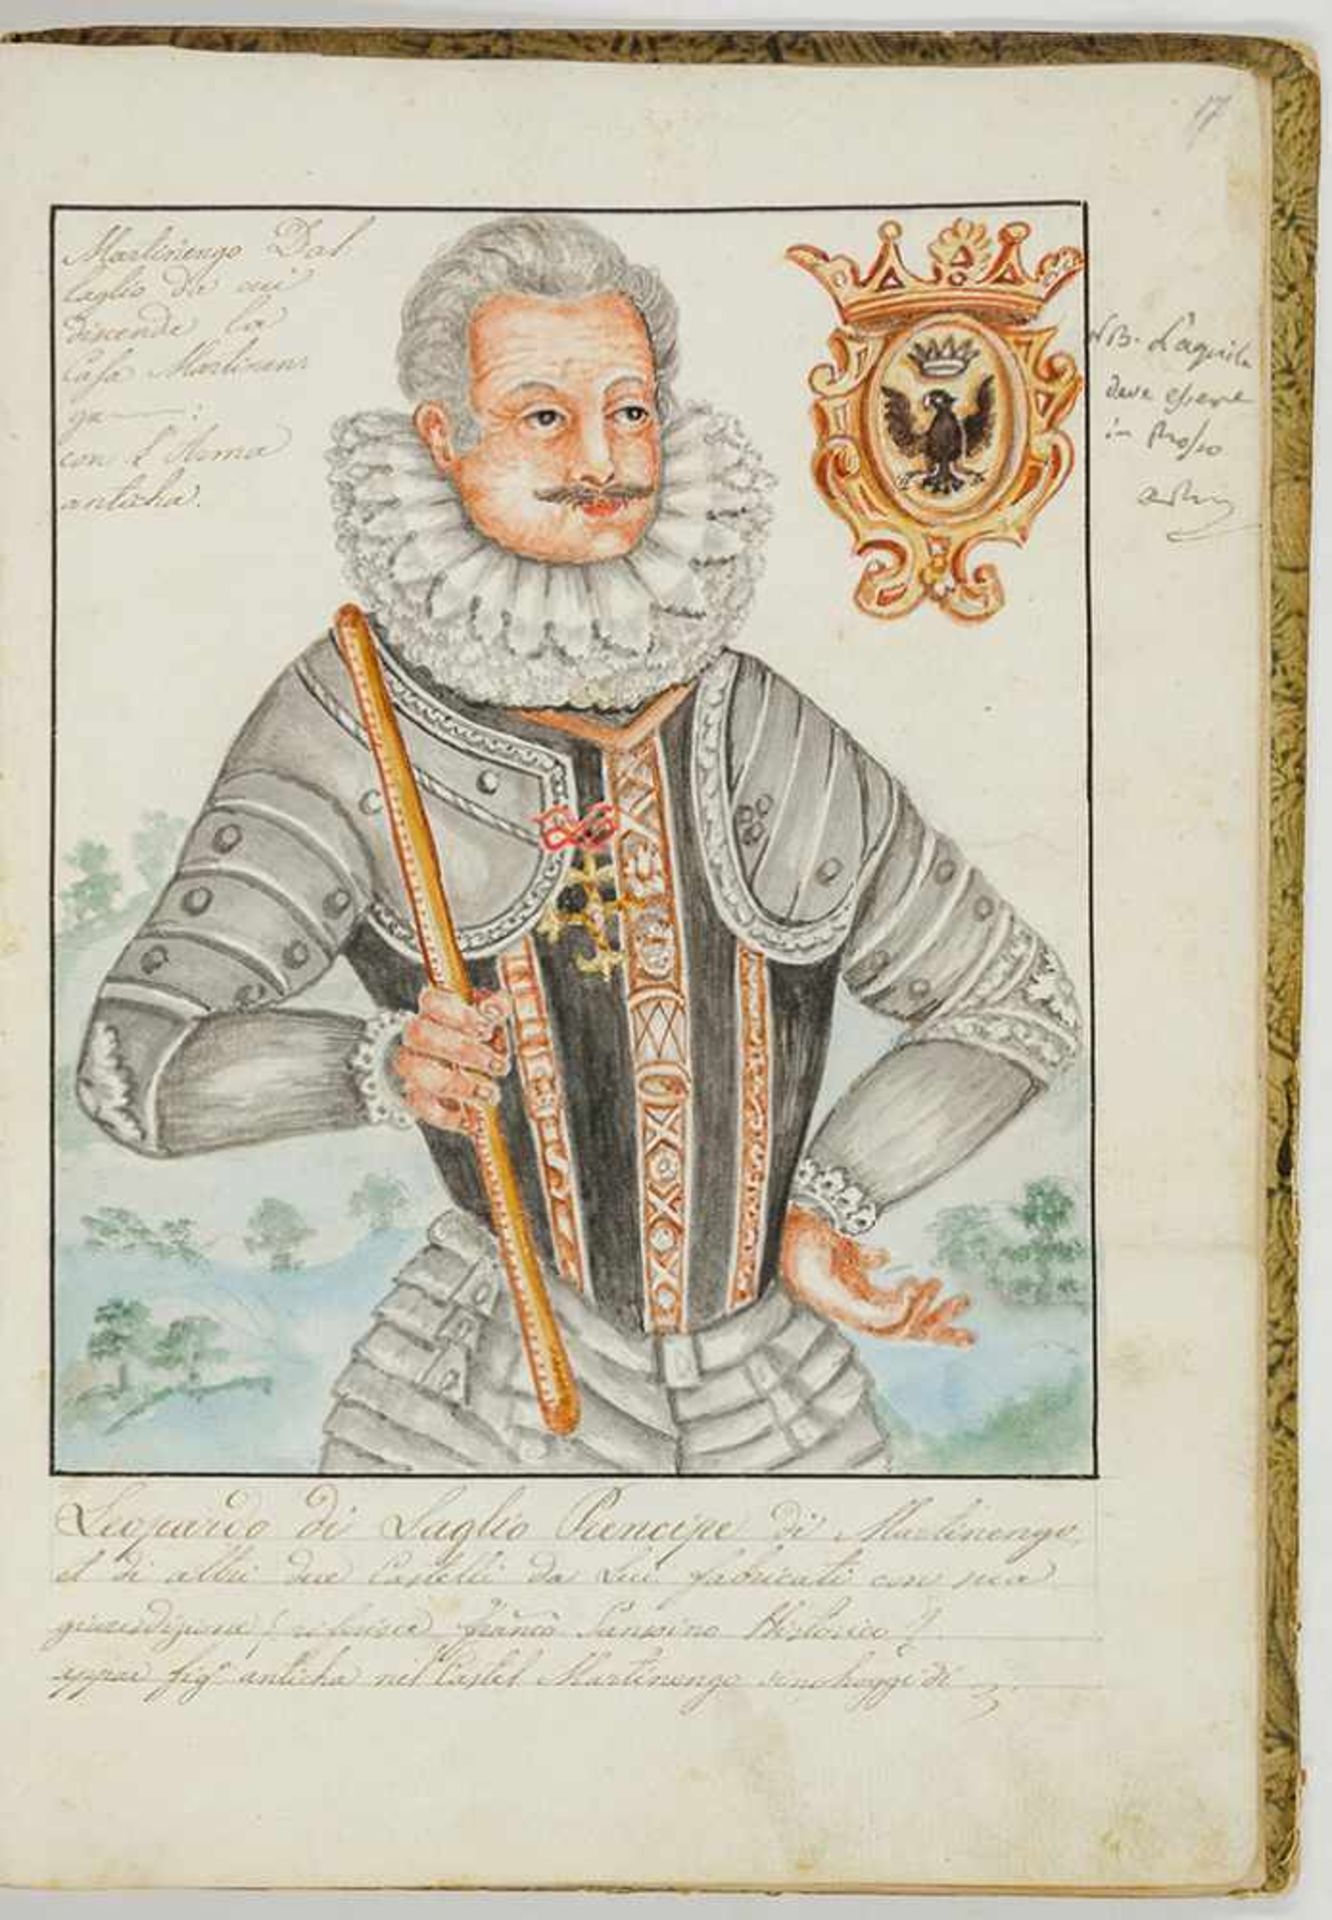 17
Martinengo Dal
laglio da cui
discende la
Casa Martinen
ga :
con l'Arma
anticha.
NB. L'aquila
deve essere
in Rosso
Leopardo di Laglio Prencipe di Martinengo,
et di altri due Castelli da Lui fabricati con sua
giurisdizione riferisce Franco Sansovino Historico
appar fig.ª anticha nel Castel Martinengo sino hoggi di